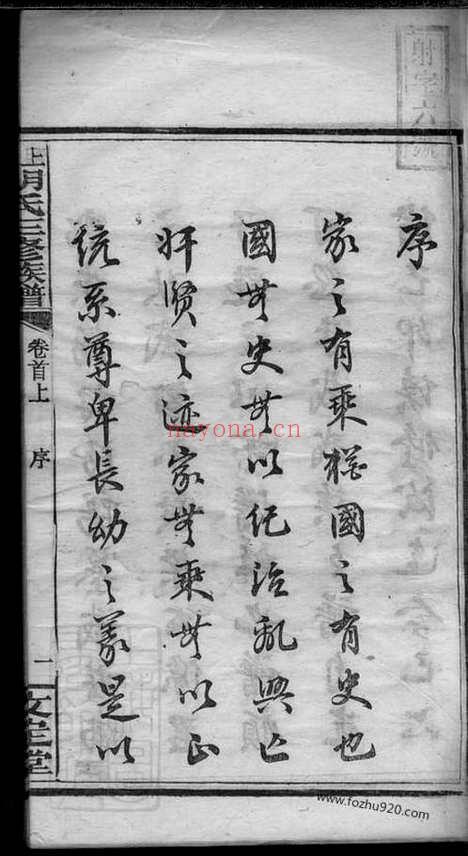 射字六號
序
家之有乘猶國之有史也
國無史無以紀治亂興亡
奸賢之迹家無乘無以正
統系尊卑長幼之義是以
上胡氏三修族譜
卷首上
序
一
文定堂
nayona.cn
www.fozhu920.com